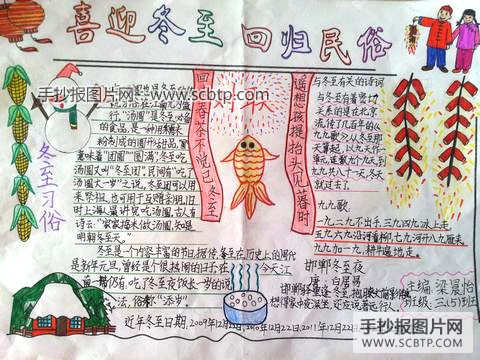 喜迎冬至 回归民俗
手抄报图片网 www.scbtp.com
冬至习俗
行。"汤圆"是冬至必备
的食品,是一种用糯米
粉制成的圆形甜品,"圆"
意味着"团圆""圆满",冬至吃
汤圆又叫"冬至团"。民间有"吃了
汤圆大一岁"之说。冬至团可以用
来祭祖,也可用于互赠亲朋。旧
时上海人最讲究吃汤圆。古人
有诗云:"家家捣米做汤圆,知是
明朝冬至天。"
冬至是一个内容丰富的节日,据传,冬至在历史上的周代
是新年元旦,曾经是个很热闹的日子。在今天江
南一带仍有吃了冬至夜饭长一岁的说
法,俗称"添岁"。
近年冬至日期:2009年12月22日,2010年12月22日,2011年12月22日
回
春
冬至
遥想孩提抬头见暮时
与冬至有关的诗词
与冬至有着密切
关系的是在北京
流传了几百年的《
九九歌》。从冬至那
天算起,以九天作一
单元,连数九个九天,到
九九共八十一天,冬天
就过去了。
九九歌
一九二九不出手,三九四九冰上走,
五九六九沿河看柳,七九河开八九雁来,
九九加一九,耕牛遍地走。
邯郸冬至夜
唐 白居易
邯郸驿里逢冬至,抱膝灯前影伴身。
想得家中夜深坐,还应说着远行人。
主编:梁晨怡
班级:三(5)班
手抄报图片网
WWW.SCBTP.COM